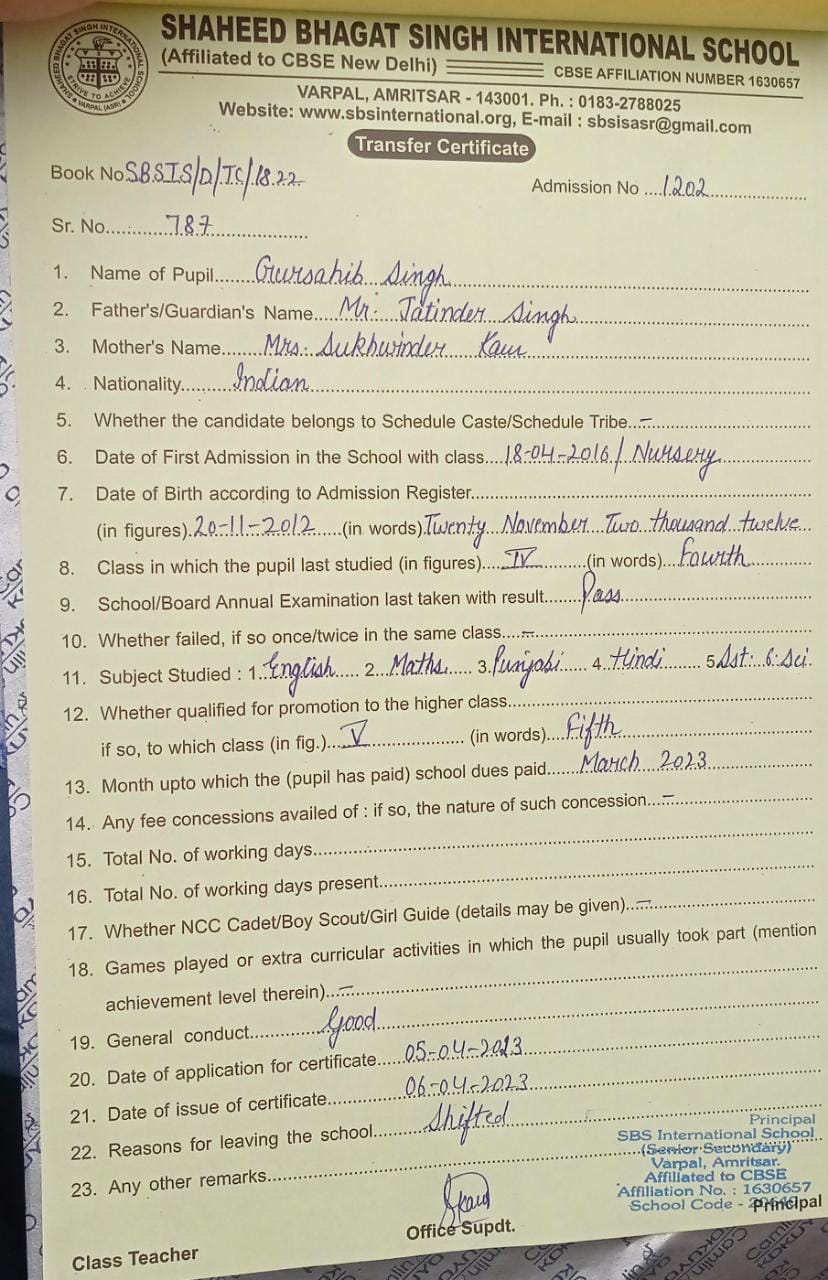 SHAHEED BHAGAT SINGH INTERNATIONAL SCHOOL
SHAHEED BHAGAT SINGH INTERNATIONAL SCHOOL
STRIVE TO ACHIEVE
VARPAL (ASR)
(Affiliated to CBSE New Delhi) CBSE AFFILIATION NUMBER 1630657
VARPAL, AMRITSAR - 143001. Ph. : 0183-2788025
Website: www.sbsinternational.org, E-mail : sbsisasr@gmail.com
Transfer Certificate
Book No SBSIS/D/TC/1822 Admission No ....1202
Sr. No. 787
1. Name of Pupil Gursahib Singh
2. Father's/Guardian's Name Mr. Jatinder Singh
3. Mother's Name Mrs. Sukhwinder Kaur
4. Nationality Indian
5. Whether the candidate belongs to Schedule Caste/Schedule Tribe -
6. Date of First Admission in the School with class 18-04-2016/ Nursery
7. Date of Birth according to Admission Register
(in figures) 20-11-2012 (in words) Twenty November Two thousand twelve
8. Class in which the pupil last studied (in figures) IV (in words) Fourth
9. School/Board Annual Examination last taken with result Pass
10. Whether failed, if so once/twice in the same class -
11. Subject Studied : 1. English 2. Maths 3. Punjabi 4. Hindi 5. Sst. 6. Sci.
12. Whether qualified for promotion to the higher class
if so, to which class (in fig.) V (in words) Fifth
13. Month upto which the (pupil has paid) school dues paid March 2023
14. Any fee concessions availed of : if so, the nature of such concession -
15. Total No. of working days
16. Total No. of working days present
17. Whether NCC Cadet/Boy Scout/Girl Guide (details may be given) -
18. Games played or extra curricular activities in which the pupil usually took part (mention
achievement level therein) -
19. General conduct Good
20. Date of application for certificate 05-04-2023
21. Date of issue of certificate 06-04-2023
22. Reasons for leaving the school Shifted
23. Any other remarks
Principal
SBS International School
(Senior Secondary)
Varpal, Amritsar.
Affiliated to CBSE
Affiliation No. : 1630657
School Code -
Class Teacher Office Supdt. Principal